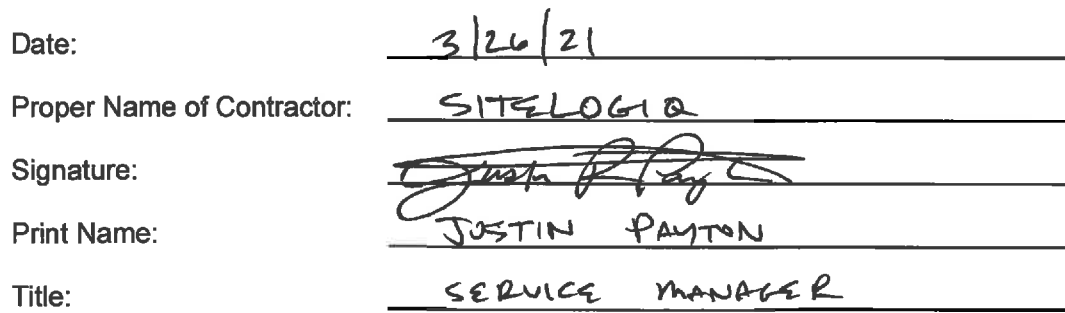 Date: 3/26/21
Proper Name of Contractor: SITELOGIQ
Signature: Justin R Payton
Print Name: JUSTIN PAYTON
Title: SERVICE MANAGER